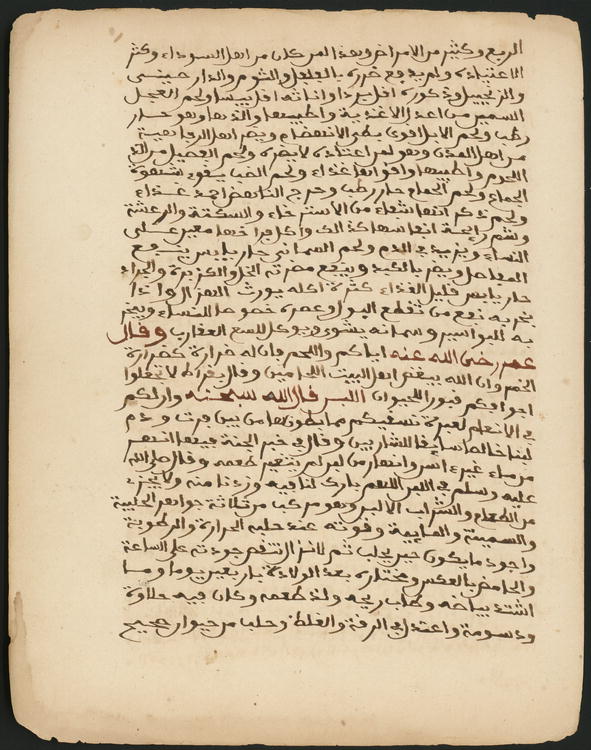 الربع وكثير من الامراض وبعد المركان من اهل السوداء وكثر
الاعتياده ولم يدفع ضرره بالفلفل والثوم والدار صيني
والزنجبيل وذكوره اقل بردا واناثه اقل يبسا ولحم العجل
السمين من اعدل الاغذية واطيبها والذها وهو حار
رطب ولحم الابل اقوى بطئ الانهضام ويضر اهل الرفاهية
من اهل المدن وهو لمن اعتاده لا يضره ولحم الفصيل من الذ
اللحوم واطيبها واقواها غذاء ولحم الضب يقوي شهوة
الجماع ولحم الحمام حار رطب وفرخ الناهض احمد غذاء
ولحم ذكر انفها شفاء من الاسترخاء والسكتة والرعشة
وشم رائحة انفاسها كذالك واكل فراخها معين على
النساء ويزيد في الدم ولحم السماني حار يابس ينفع
المفاصل ويضر بالكبد ويدفع مضرته الخل والكزبرة والجراد
حار يابس قليل الغذاء كثرة اكله يورث الهزال واذا
بخر به نفع من تقطع البول وعسره خصوصا للنساء ويبخر
به للبواسير وسمانه يشوى ويوكل للسع العقارب وقال
عمر رضي الله عنه اياكم واللحم فان له ضراوة كضراوة
الخمر وان الله يبغض اهل البيت اللحامين وقال بقراط لا تجعلوا
اجوافكم قبورا للحيوان اللبن قال الله سبحانه وان لكم
في الانعام لعبرة نسقيكم مما في بطونها من بين فرث ودم
لبنا خالصا سائغا للشاربين وقال في خبر الجنة فيها انهار
من ماء غير ءاسن وانهار من لبن لم يتغير طعمه وقال صلى الله
عليه وسلم في اللبن اللهم بارك لنا فيه وزدنا منه ولا يجزئ
من الطعام والشراب الا اللبن وهو مركب من ثلاثة جواهر الجبنية
والسمنية والمايية وقوته عند حلبه الحرارة والرطوبة
واجود ما يكون حين يحلب ثم لا تزال تنقص جودته على الساعة
والحامض بالعكس ومختاره بعد الولادة باربعين يوما وما
اشتد بياضه وطاب ريحه ولذ طعمه وكان فيه حلاوة
ودسومة واعتدل في الرقة والغلظ وحلب من حيوان صحيح